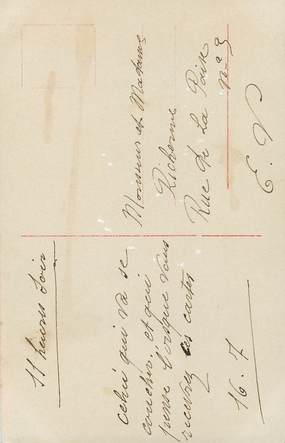 11 heures soir
celui qui va se
coucher. et qui
pense lorsque vous
recevrez ces cartes
16. 7
Monsieur et Madame
Richerme
Rue de La Paix
n° 3
E. V